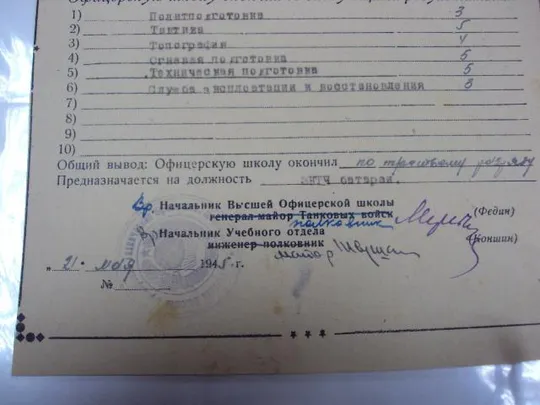 1) Политподготовка 3
2) Тактика 5
3) Топография 4
4) Огневая подготовка 5
5) Техническая подготовка 5
6) Служба эксплоатации и восстановления 3
7)
8)
9)
10)
Общий вывод: Офицерскую школу окончил по третьему разряду
Предназначается на должность ЗНТЧ батареи.
Вр. Начальник Высшей Офицерской школы
генерал-майор Танковых войск полковник (Федин)
Начальник Учебного отдела (Коншин)
инженер-полковник майор
„21" мая 1945 г.
№